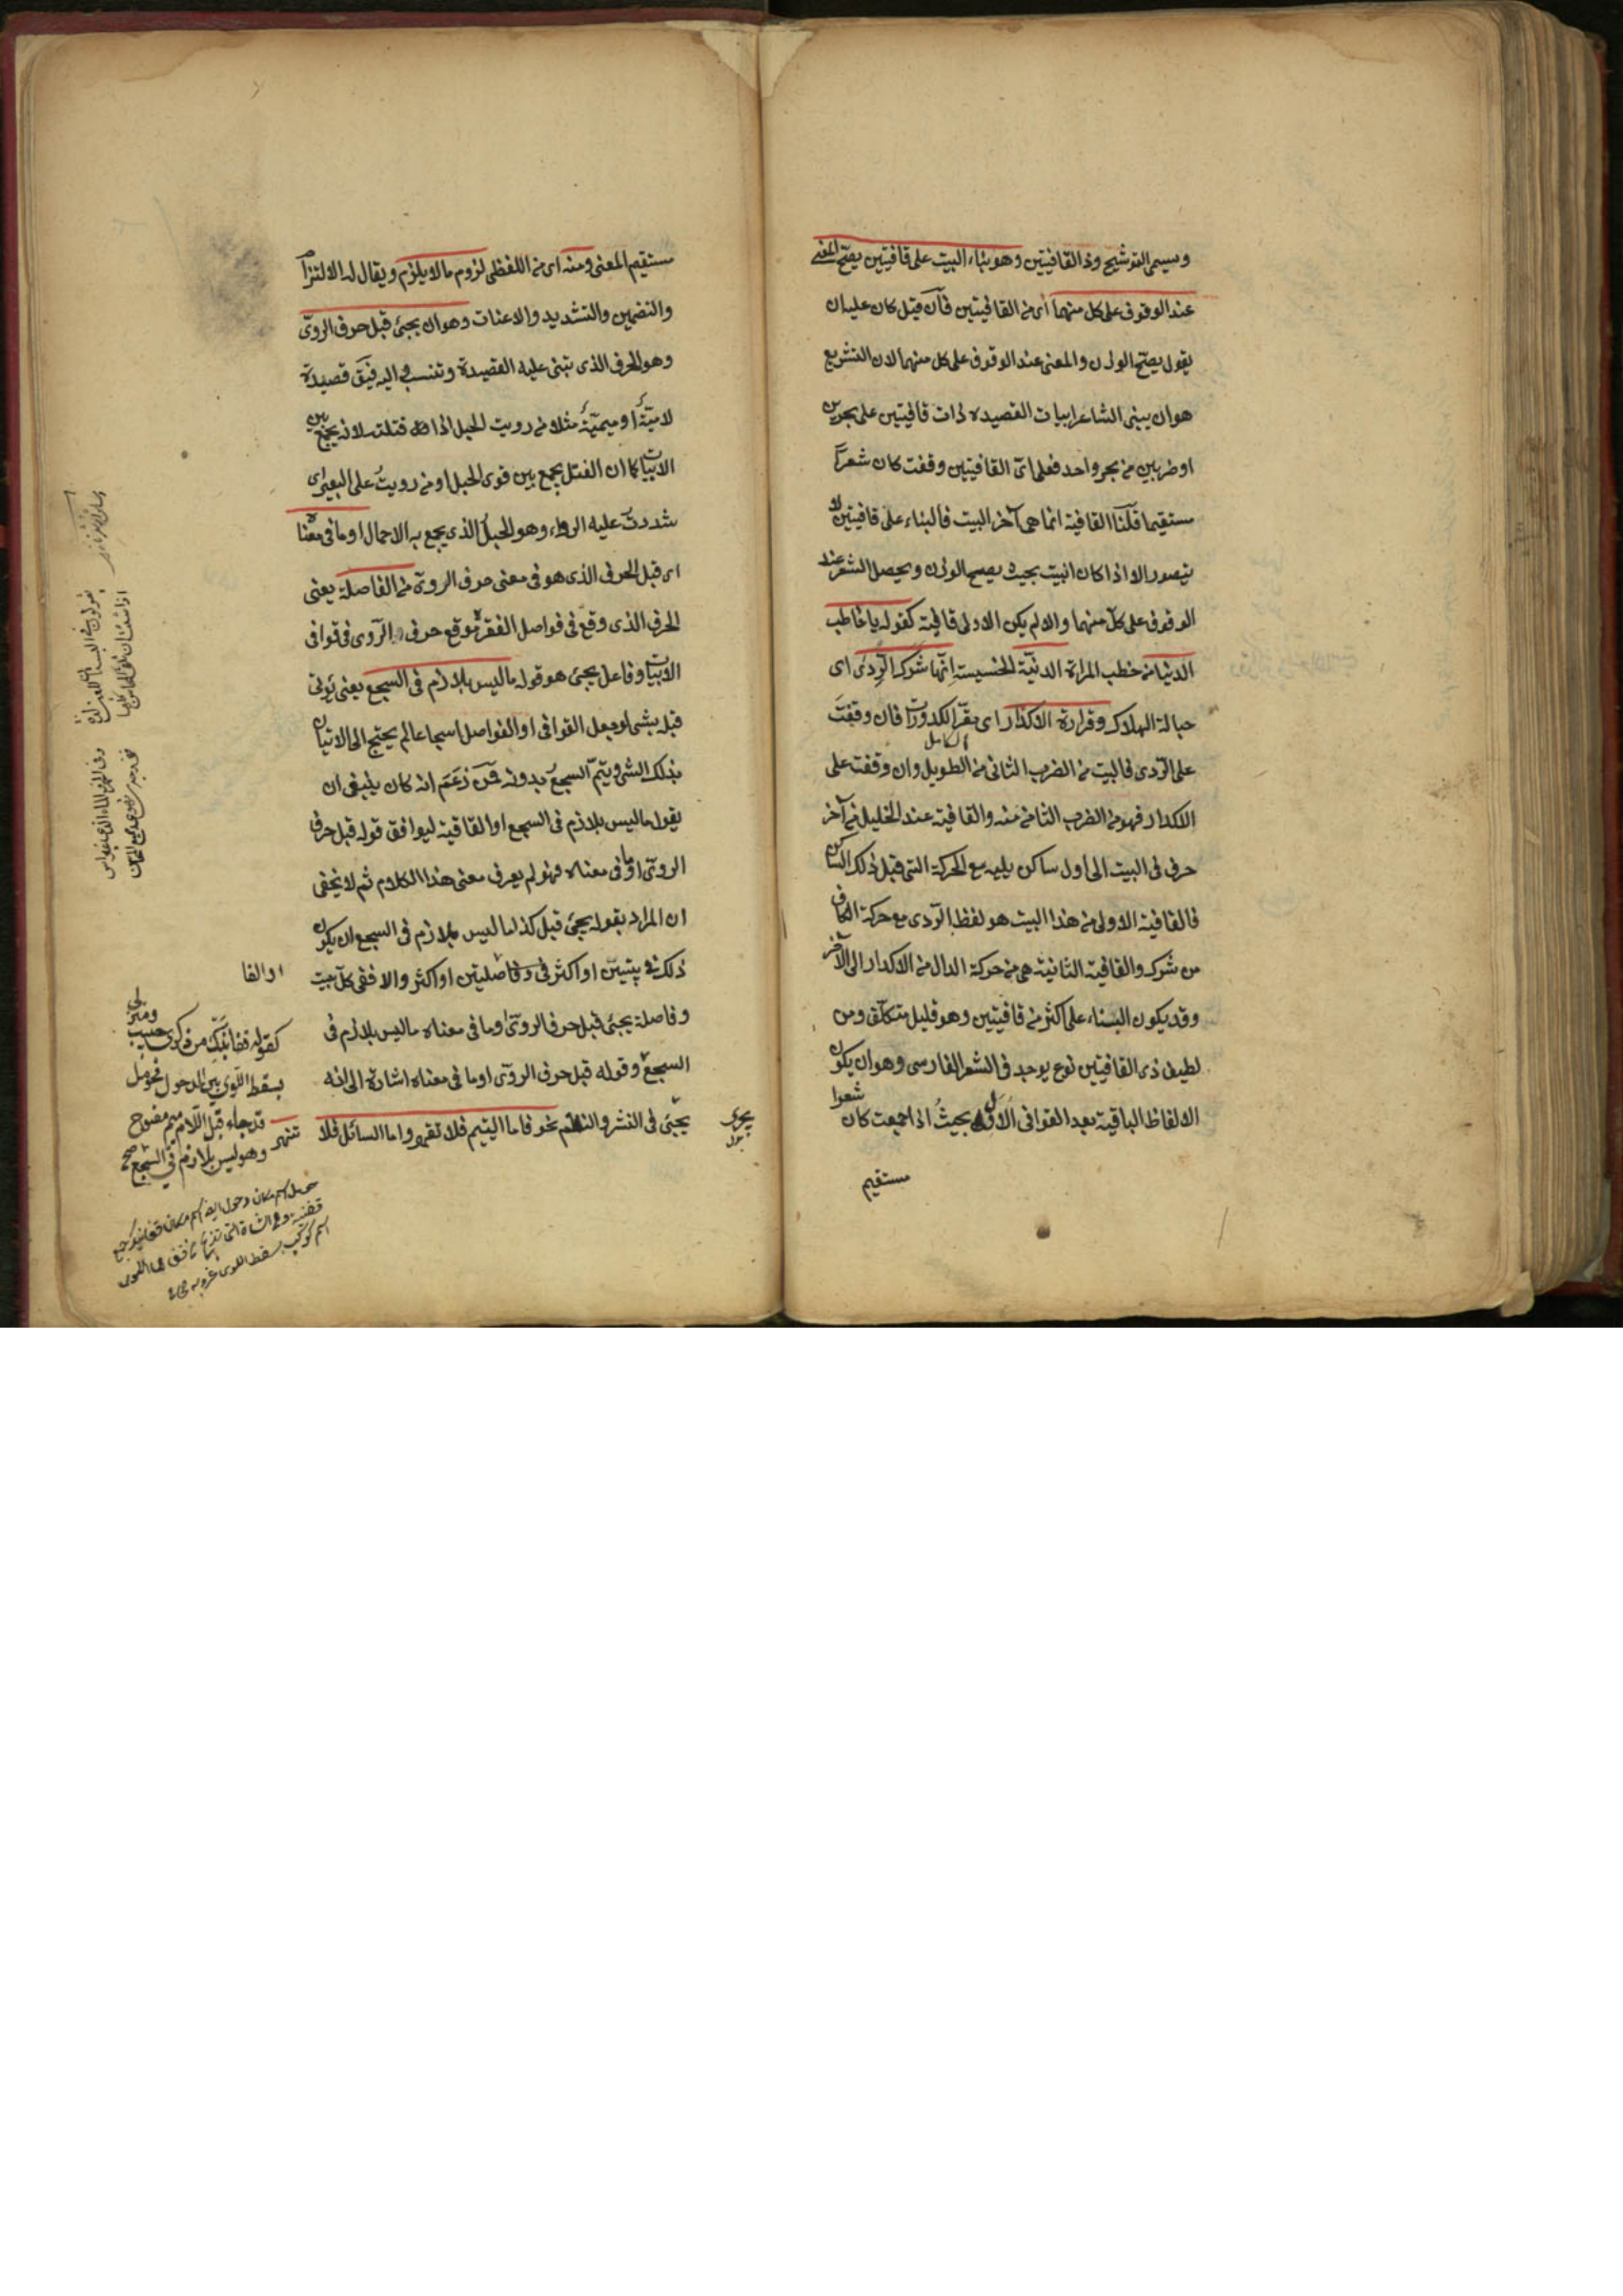 ويسمى التوشيح وذا القافيتين وهو بناء البيت على قافيتين يصح المعنى
عند الوقوف على كل منهما اى من القافيتين فان قيل كان عليه ان
يقول يصح الوزن والمعنى عند الوقوف على كل منهما لان التشريع
هو ان يبنى الشاعر ابيات القصيدة ذات قافيتين على بحرين
او ضربين من بحر واحد فعلى اى القافيتين وقفت كان شعرا
مستقيما قلنا القافية انما هى آخر البيت فالبناء على قافيتين لا
يتصور الا اذا كان البيت بحيث يصح الوزن ويحصل الشعر عند
الوقوف على كل منهما والا لم يكن الاولى قافية كقوله يا خاطب
الدنيا من خطب المراة الدنيّة الخسيسة انّها شرك الرّدى اى
حبالة الهلاك وقرارة الاكدار اى مقر الكدورات فان وقفت
على الرّدى فالبيت من الضرب الثانى من الطويل وان وقفت على
الكامل
الاكدار فهو من الضرب الثانى منه والقافية عند الخليل من آخر
حرف فى البيت الى اول ساكن يليه مع الحركة التى قبل ذلك الساكن
فالقافية الاولى من هذا البيت هو لفظ الرّدى مع حركة الكاف
من شرك والقافية الثانية هى من حركة الدال من الاكدار الى الآخر
وقد يكون البناء على اكثر من قافيتين وهو قليل متكلّف ومن
لطيف ذى القافيتين نوع يوجد فى الشعر الفارسى وهو ان يكون
الالفاظ الباقية بعد القوافى الاول بحيث اذا جمعت كان شعرا
مستقيم
مستقيم المعنى ومنه اى من اللفظى لزوم ما لا يلزم ويقال له الالتزام
والتضمين والتشديد والاعنات وهو ان يجئ قبل حرف الروىّ
وهو الحرف الذى تبنى عليه القصيدة وتنسب اليه فيق قصيدة
لاميّة او ميميّة مثلا من رويت الحبل اذا فتلته لانه يجمع بين
الابيات كما ان الفتل يجمع بين قوى الحبل او من رويت على البعير اى
شددت عليه الرواء وهو الحبل الذى يجمع به الاحمال او ما فى معناه
اى قبل الحرف الذى هو فى معنى حرف الروى من الفاصلة يعنى
الحرف الذى وقع فى فواصل الفقر موقع حرف الروى فى قوافى
الابيات وفاعل يجئ هو قوله ما ليس بلازم فى السجع يعنى يؤتى
قبله بشى لو جعل القوافى او الفواصل اسجاعا لم يحتج الى الاتيان
بذلك الشى ويتمّ السجع بدونه فمن زعم انه كان ينبغى ان
يقول ما ليس بلازم فى السجع او القافية ليوافق قوله قبل حرف
الروىّ او ما فى معناه فهو لم يعرف معنى هذا الكلام ثم لا يخفى
ان المراد بقوله يجئ قبل كذا ما ليس بلازم فى السجع ان يكون
ذلك فى بيتين او اكثر او فاصلتين او اكثر والا ففى كل بيت
وفاصلة يجئ قبل حرف الروىّ او ما فى معناه ما ليس بلازم فى
السجع وقوله قبل حرف الروىّ او ما فى معناه اشارة الى انه
يجئ فى النثر والنظم نحو فاما اليتيم فلا تقهر واما السائل فلا
تنهر
او الفا
كقوله قفا نبك من ذكرى حبيب ومنزل
بسقط اللّوى بين الدخول فحومل
قد جاء قبل اللّام ميم مفتوح
وهو ليس بلازم فى السّجع صح